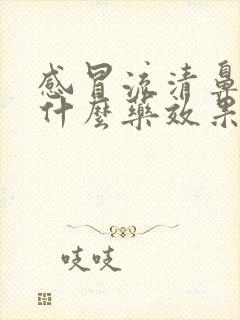 感冒流清鼻
什麼藥效果
吱吱